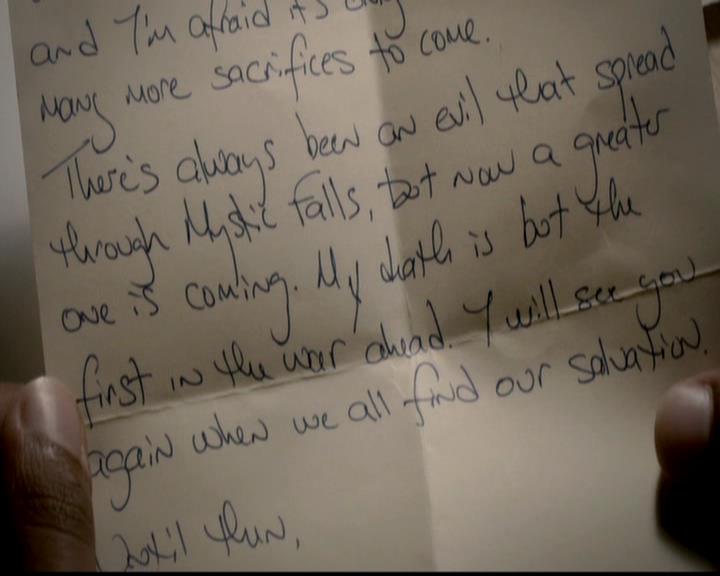 and I'm afraid it's only
many more sacrifices to come.
There's always been an evil that spread
through Mystic Falls, but now a greater
one is coming. My death is but the
first in the war ahead. I will see you
again when we all find our salvation.
Until then,